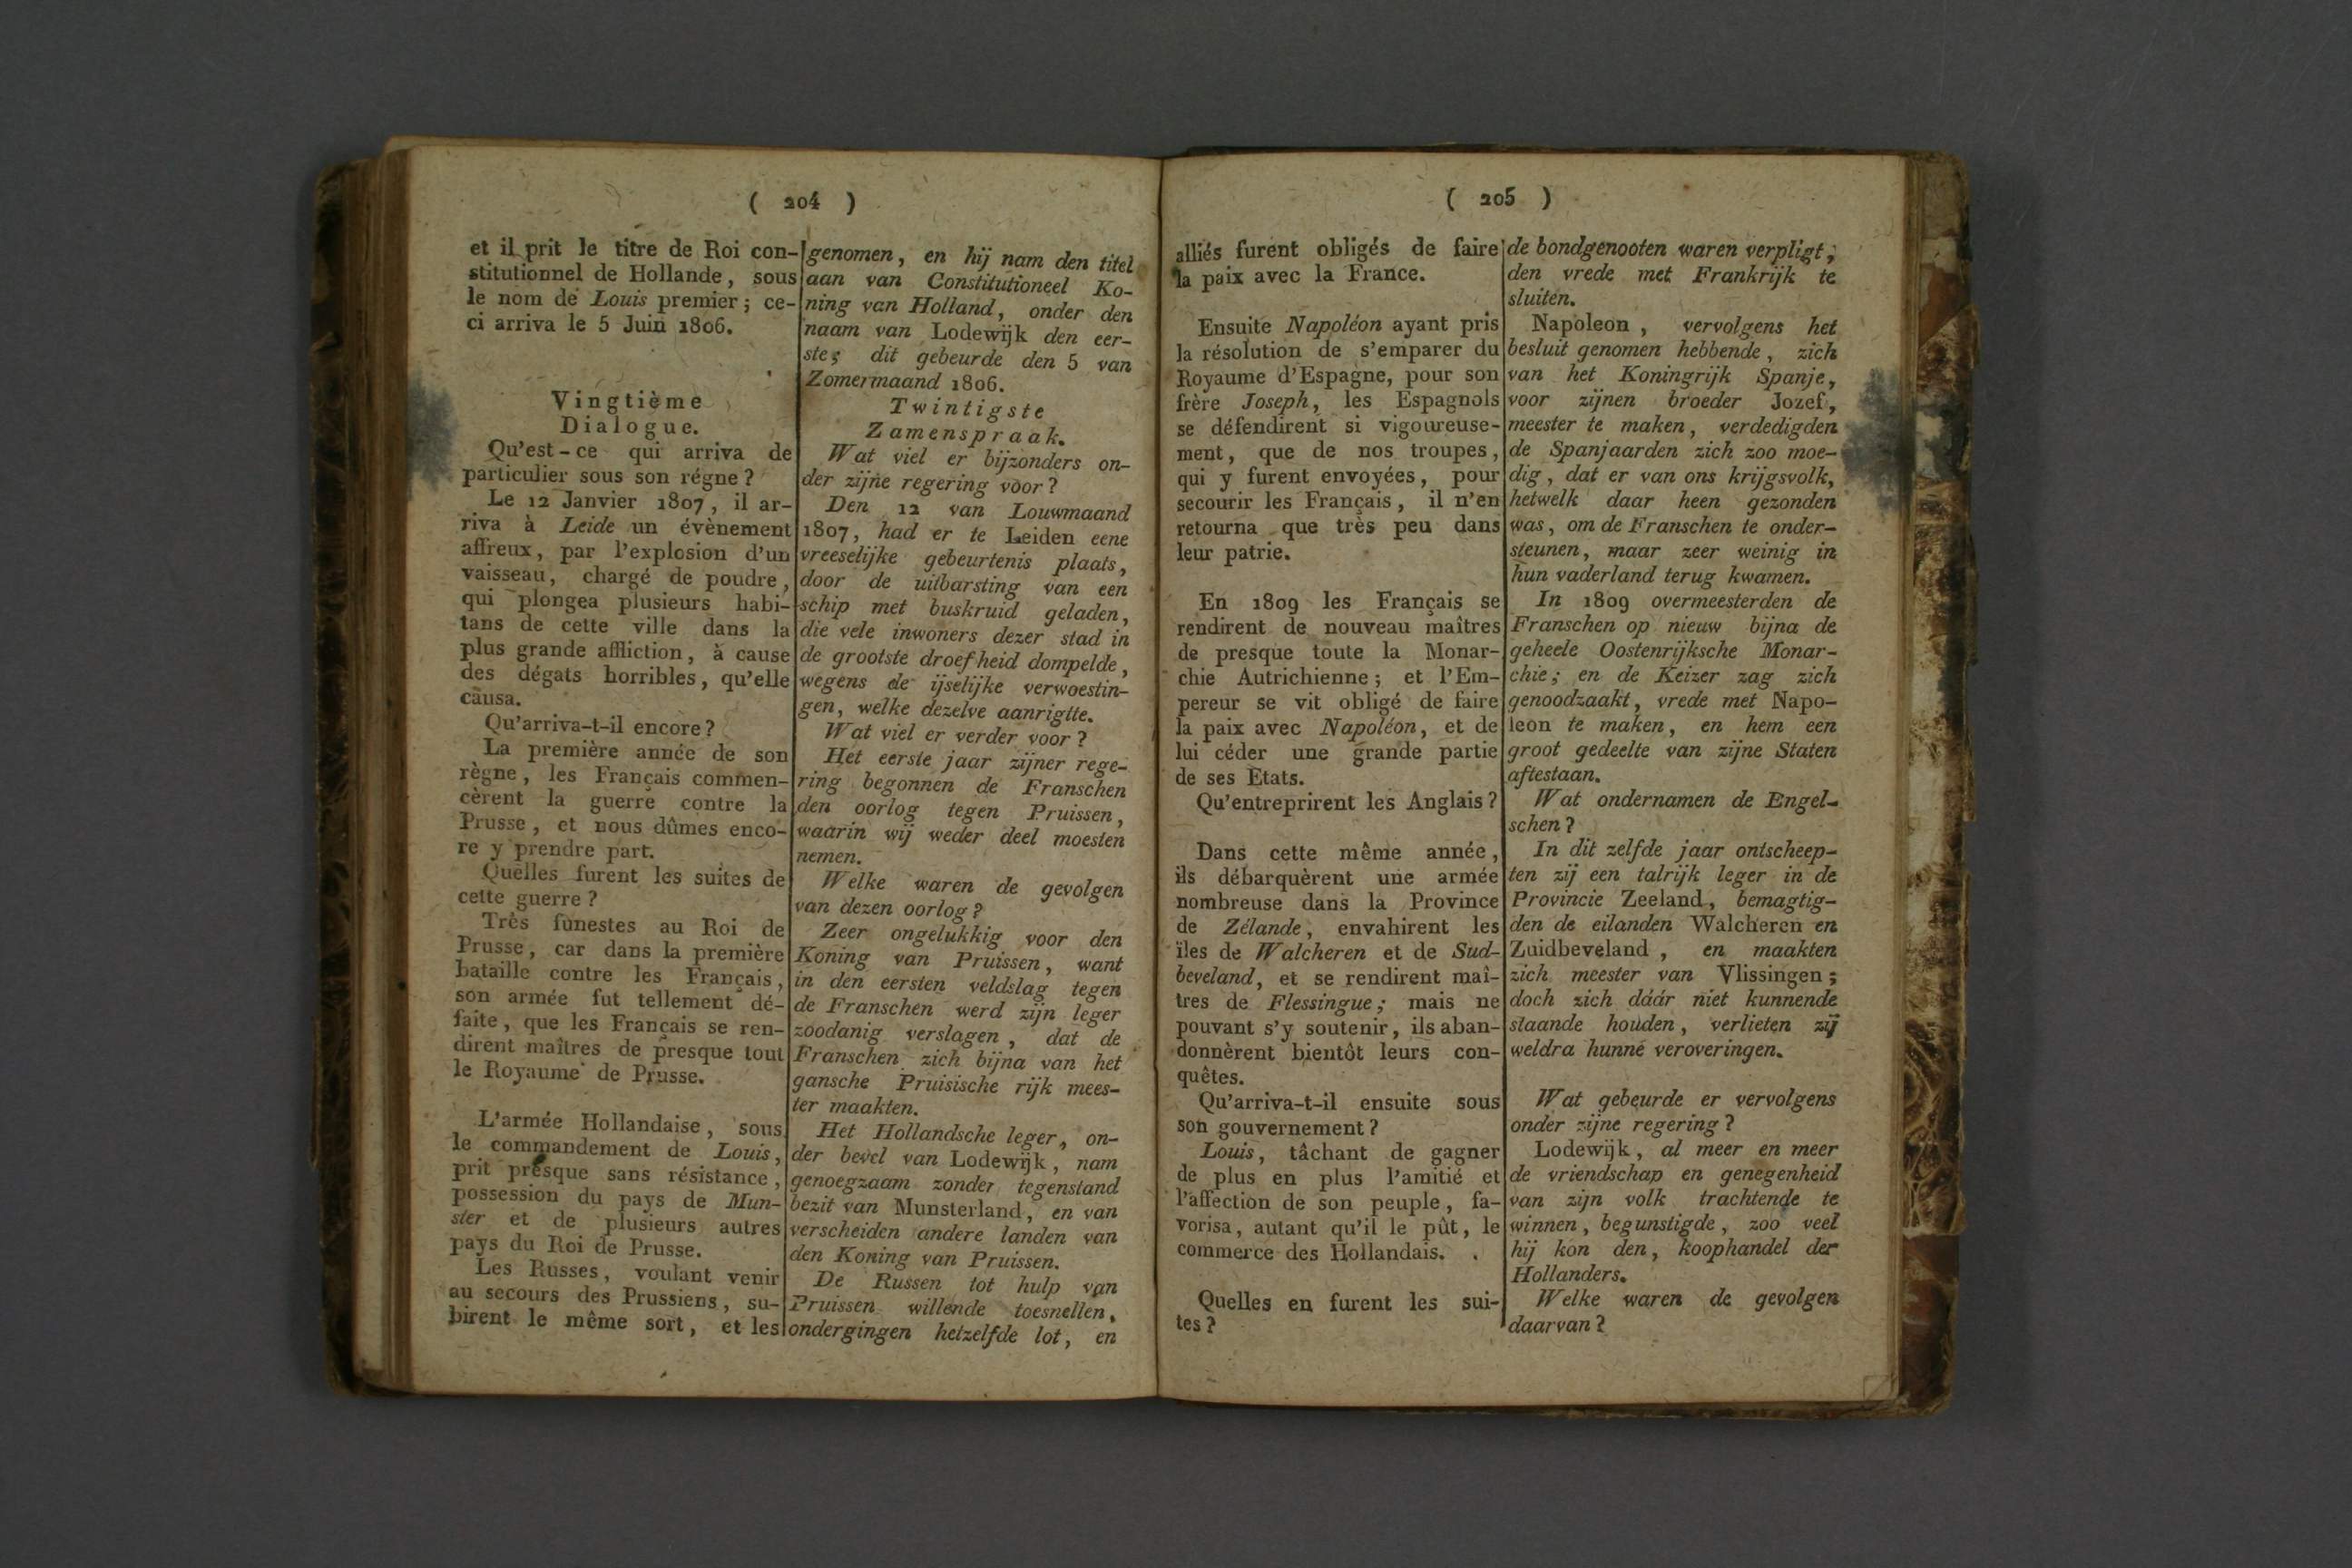 ( 204 )
et il prit le titre de Roi con-
stitutionnel de Hollande, sous
le nom de Louis premier; ce-
ci arriva le 5 Juin 1806.
Vingtième
Dialogue.
Qu'est-ce qui arriva de
particulier sous son régne?
Le 12 Janvier 1807, il ar-
riva à Leide un évènement
affreux, par l'explosion d'un
vaisseau, chargé de poudre,
qui plongea plusieurs habi-
tans de cette ville dans la
plus grande affliction, à cause
des dégats horribles, qu'elle
causa.
Qu'arriva-t-il encore?
La première année de son
règne, les Français commen-
cèrent la guerre contre la
Prusse, et nous dûmes enco-
re y prendre part.
Quelles furent les suites de
cette guerre?
Très funestes au Roi de
Prusse, car dans la première
bataille contre les Français,
son armée fut tellement dé-
faite, que les Français se ren-
dirent maîtres de presque tout
le Royaume de Prusse.
L'armée Hollandaise, sous
le commandement de Louis,
prit presque sans résistance,
possession du pays de Mun-
ster et de plusieurs autres
pays du Roi de Prusse.
Les Russes, voulant venir
au secours des Prussiens, su-
birent le même sort, et les
genomen, en hij nam den titel
aan van Constitutioneel Ko-
ning van Holland, onder den
naam van Lodewijk den eer-
ste; dit gebeurde den 5 van
Zomermaand 1806.
Twintigste
Zamenspraak.
Wat viel er bijzonders on-
der zijne regering voor?
Den 12 van Louwmaand
1807, had er te Leiden eene
vreeselijke gebeurtenis plaats,
door de uitbarsting van een
schip met buskruid geladen,
die vele inwoners dezer stad in
de grootste droefheid dompelde,
wegens de ijselijke verwoestin-
gen, welke dezelve aanrigtte.
Wat viel er verder voor?
Het eerste jaar zijner rege-
ring begonnen de Franschen
den oorlog tegen Pruissen,
waarin wij weder deel moesten
nemen.
Welke waren de gevolgen
van dezen oorlog?
Zeer ongelukkig voor den
Koning van Pruissen, want
in den eersten veldslag tegen
de Franschen werd zijn leger
zoodanig verslagen, dat de
Franschen zich bijna van het
gansche Pruisische rijk mees-
ter maakten.
Het Hollandsche leger, on-
der bevel van Lodewijk, nam
genoegzaam zonder tegenstand
bezit van Munsterland, en van
verscheiden andere landen van
den Koning van Pruissen.
De Russen tot hulp van
Pruissen willende toesnellen,
ondergingen hetzelfde lot, en
( 205 )
alliés furent obligés de faire
la paix avec la France.
Ensuite Napoléon ayant pris
la résolution de s'emparer du
Royaume d'Espagne, pour son
frère Joseph, les Espagnols
se défendirent si vigoureuse-
ment, que de nos troupes,
qui y furent envoyées, pour
secourir les Français, il n'en
retourna que très peu dans
leur patrie.
En 1809 les Français se
rendirent de nouveau maîtres
de presque toute la Monar-
chie Autrichienne; et l'Em-
pereur se vit obligé de faire
la paix avec Napoléon, et de
lui céder une grande partie
de ses Etats.
Qu'entreprirent les Anglais?
Dans cette même année,
ils débarquèrent une armée
nombreuse dans la Province
de Zélande, envahirent les
îles de Walcheren et de Sud-
beveland, et se rendirent maî-
tres de Flessingue; mais ne
pouvant s'y soutenir, ils aban-
donnèrent bientôt leurs con-
quêtes.
Qu'arriva-t-il ensuite sous
son gouvernement?
Louis, tâchant de gagner
de plus en plus l'amitié et
l'affection de son peuple, fa-
vorisa, autant qu'il le pût, le
commerce des Hollandais.
Quelles en furent les sui-
tes?
de bondgenooten waren verpligt,
den vrede met Frankrijk te
sluiten.
Napoleon, vervolgens het
besluit genomen hebbende, zich
van het Koningrijk Spanje,
voor zijnen broeder Jozef,
meester te maken, verdedigden
de Spanjaarden zich zoo moe-
dig, dat er van ons krijgsvolk,
hetwelk daar heen gezonden
was, om de Franschen te onder-
steunen, maar zeer weinig in
hun vaderland terug kwamen.
In 1809 overmeesterden de
Franschen op nieuw bijna de
geheele Oostenrijksche Monar-
chie; en de Keizer zag zich
genoodzaakt, vrede met Napo-
leon te maken, en hem een
groot gedeelte van zijne Staten
aftestaan.
Wat ondernamen de Engel-
schen?
In dit zelfde jaar ontscheep-
ten zij een talrijk leger in de
Provincie Zeeland, bemagtig-
den de eilanden Walcheren en
Zuidbeveland, en maakten
zich meester van Vlissingen;
doch zich dáár niet kunnende
staande houden, verlieten zij
weldra hunne veroveringen.
Wat gebeurde er vervolgens
onder zijne regering?
Lodewijk, al meer en meer
de vriendschap en genegenheid
van zijn volk trachtende te
winnen, begunstigde, zoo veel
hij kon den, koophandel der
Hollanders.
Welke waren de gevolgen
daarvan?